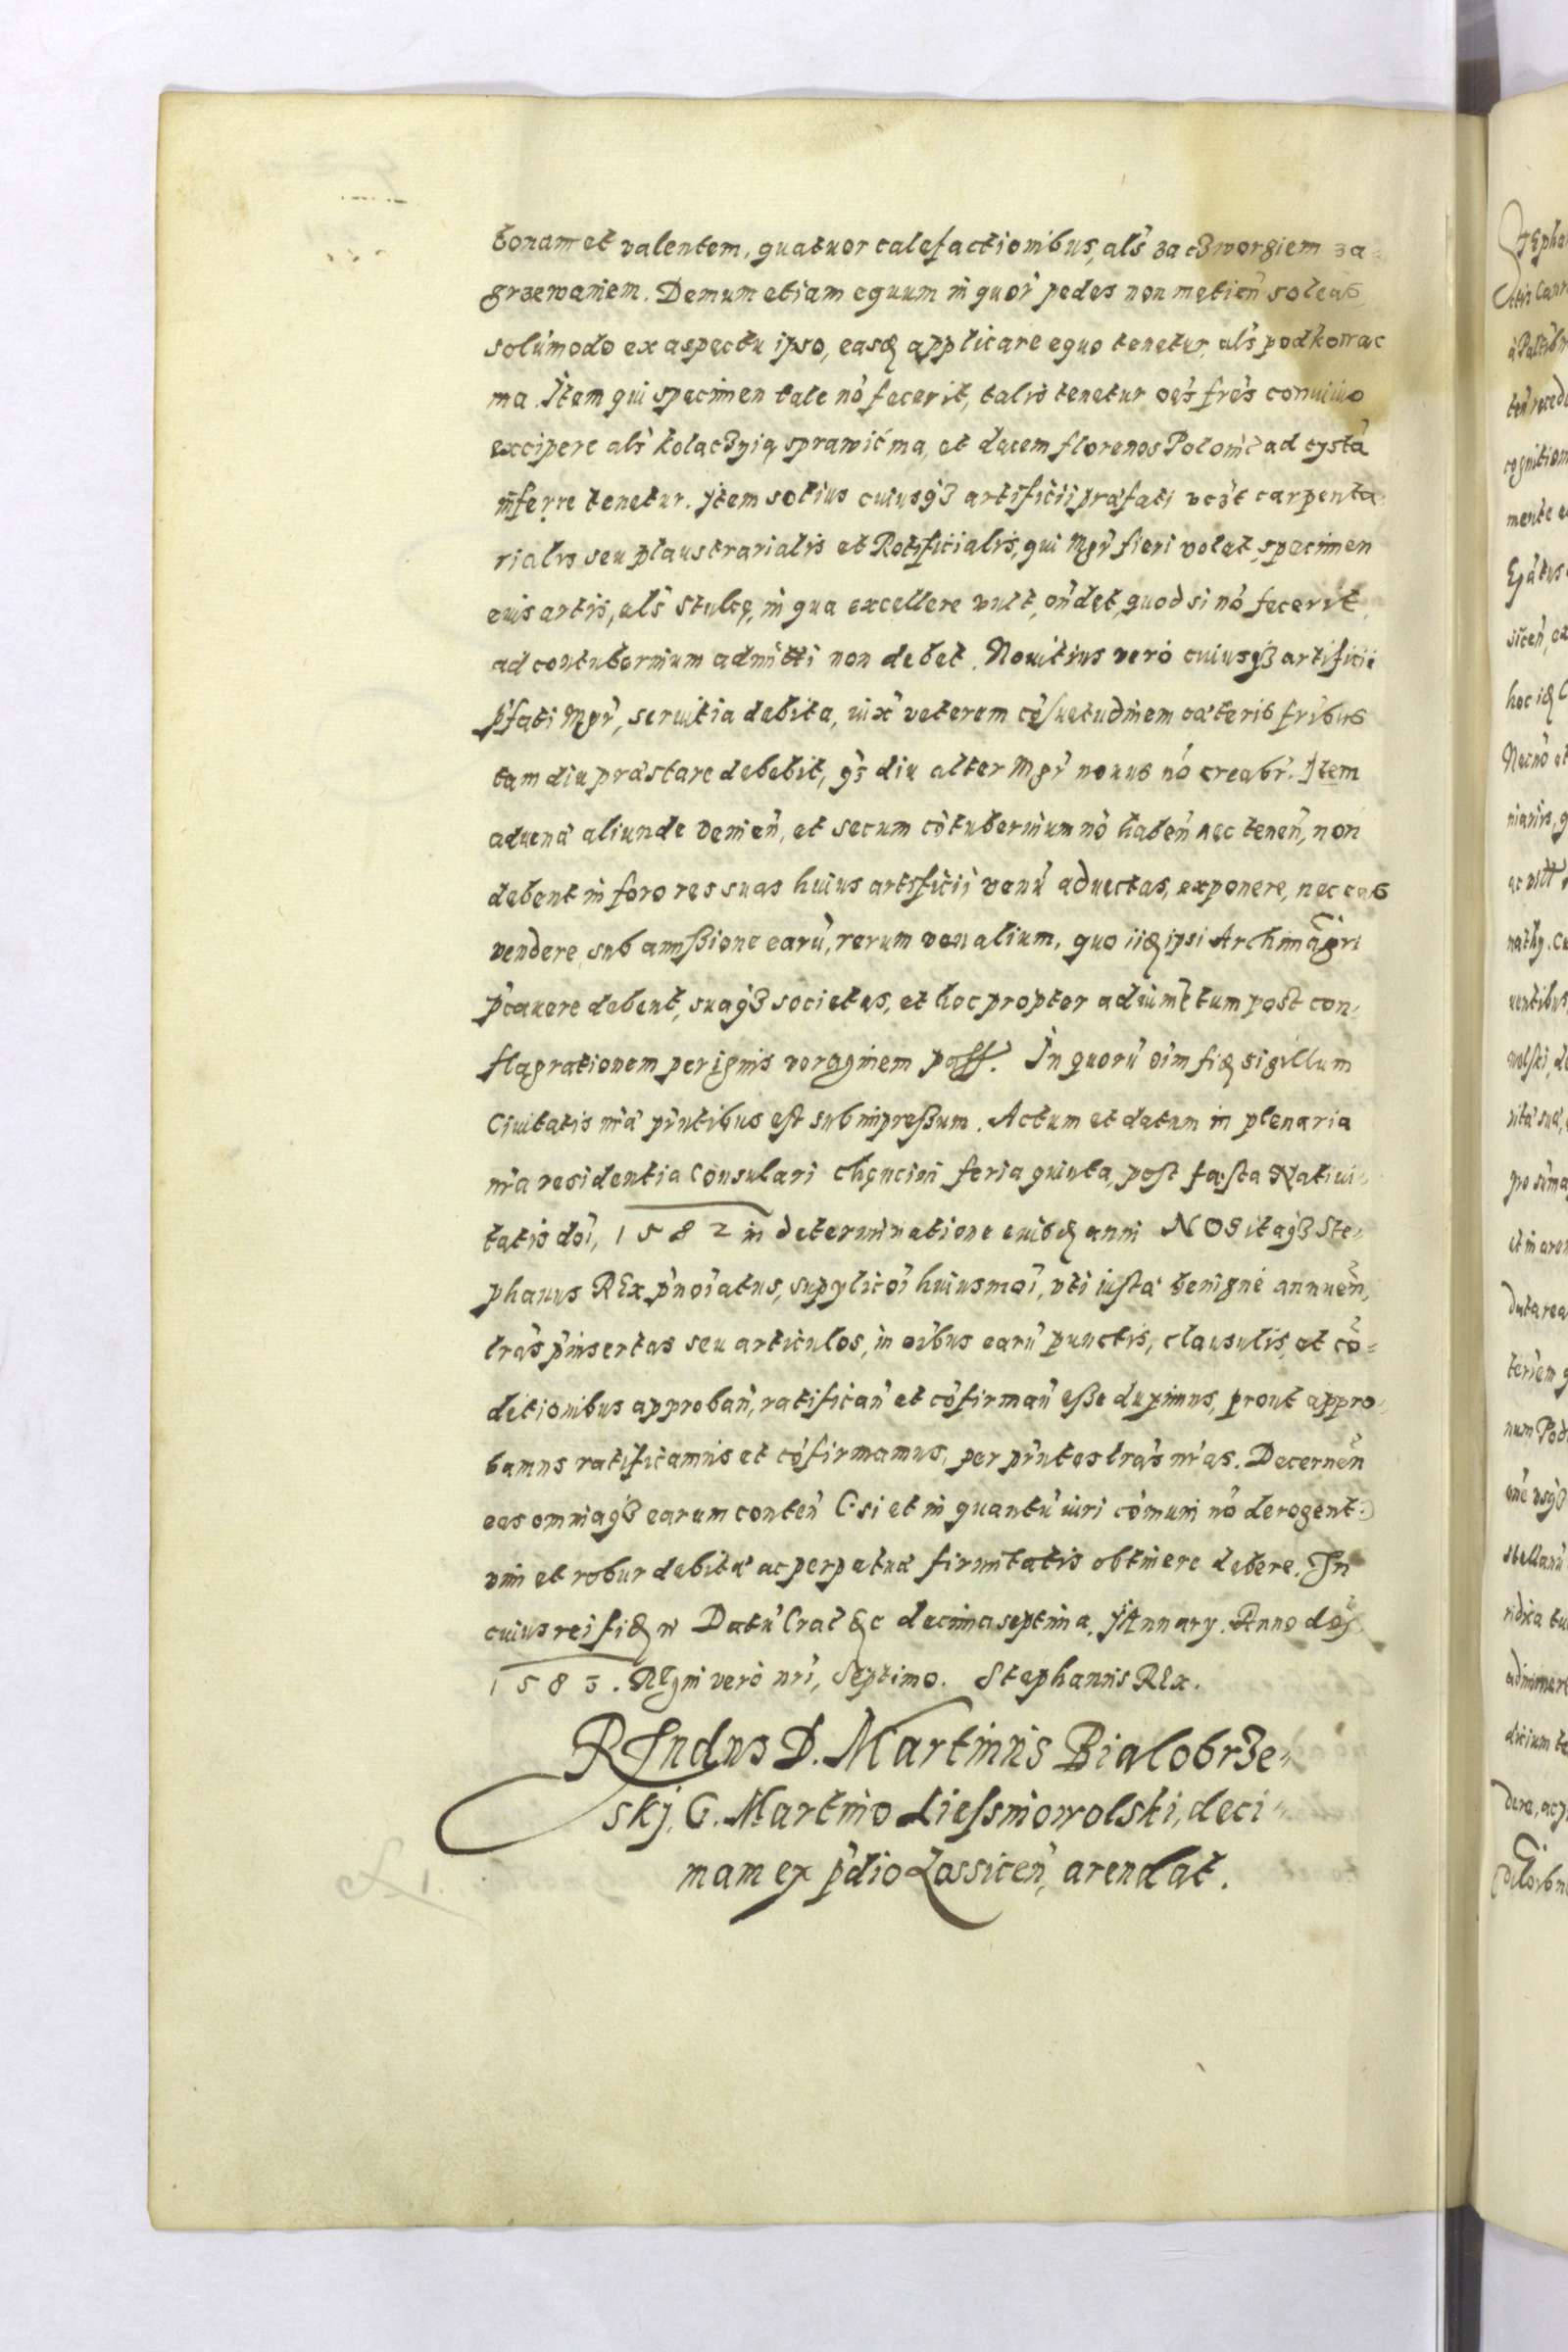 bonam et valentem, quatuor calefactionibus, als za czworgiem za-
grzewaniem. Demum etiam equum in quor pedes non metien soleas
solumodo ex aspectu ipso, easq applicare equo tenetur, als podkowac
ma. Item qui specimen tale no fecerit, talis tenetur oes fres conuiuio
excipere als kolaczyią sprawić ma, et decem florenos Polonic ad cysta
inferre tenetur. Item socius cuiusqz artificii prafati vczt carpenta
rialis seu plaustrarialis et Rotificialis, qui Mgr fieri volet, specimen
euis artis, als Stulcę, in qua excellere vult, ondet, quod si no fecerit
ad contubernium admitti non debet. Nouitius vero cuiusqz artificii
pfati Mgr, seruitia debita, iux veterem cosuetudinem cæteris fribus
tam diu præstare debebit, qs diu alter Mgr nouus no creabr. Item
aduenæ aliunde venien, et secum cotubernium no haben nec tenen, non
debent in foro res suas huius artificii venu aduectas, exponere, nec eas
vendere, sub amißione earu, rerum venalium, quo iiq ipsi Archimagri
pcauere debent, suaqz societas, et hoc propter adiumetum post con-
flagrationem per ignis voraginem paff. In quoru oim fiq sigillum
Ciuitatis nræ pntibus est subimpreßum. Actum et datum in plenaria
nra residentia Consulari Chęncini feria quinta, post festa Natiui-
tatis doi, 1582 in determinatione euisdq anni NOS itaqz Ste-
phanus REx pnoiatus, supplicoi huiusmoi, vti iusta benigne annuen,
lras pinsertas seu articulos, in oibus earu punctis, clausulis, et co-
ditionibus approban, ratifican et cofirman eße duximus, prout appro-
bamus ratificamus et cofirmamus, per pntes lras nras. Decernen
eas omniaqz earum conten (si et in quantu iuri comuni no derogent)
vim et robur debitæ ac perpetuæ firmitatis obtinere debere. In
cuius rei fiq n Datu Crac &c decimaseptima, JAnuary. Anno doj
1583. REgni vero nri, Septimo. Stephanus REx.
REndus D. Martinus Bialobrze-
skj, G. Martino Liessniowolski, deci-
mam ex pdio Lossicen, arendat.